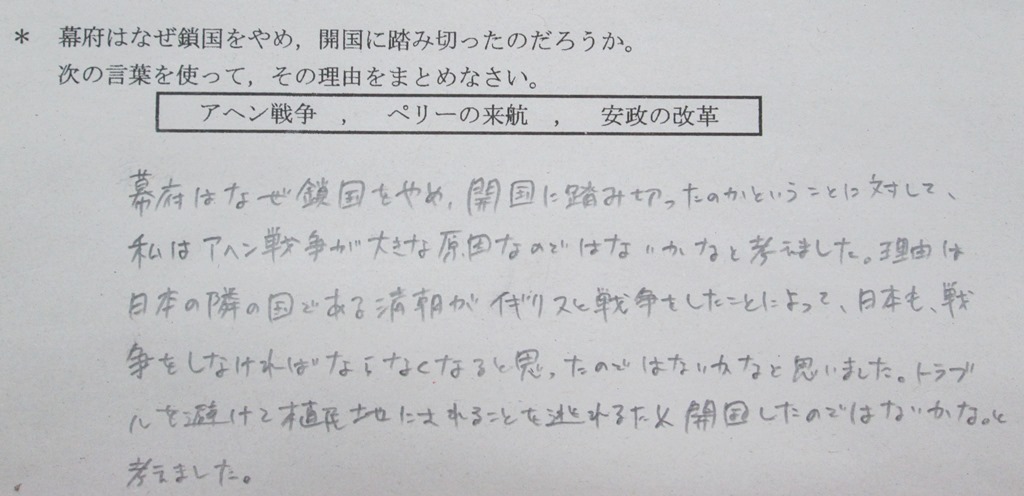 * 幕府はなぜ鎖国をやめ，開国に踏み切ったのだろうか。
次の言葉を使って，その理由をまとめなさい。
アヘン戦争 ， ペリーの来航 ， 安政の改革
幕府はなぜ鎖国をやめ,開国に踏み切ったのかということに対して、
私はアヘン戦争が大きな原因なのではないかなと考えました。理由は
日本の隣の国である清朝がイギリスと戦争をしたことによって、日本も、戦
争をしなければならなくなると思ったのではないかなと思いました。トラブ
ルを避けて植民地にされることを逃れるため開国したのではないかな。と
考えました。